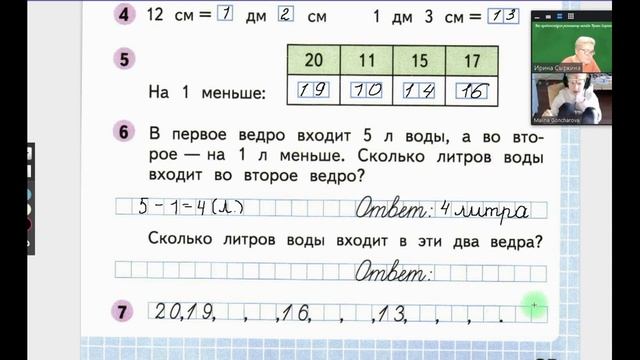 4 12 см = 1 дм 2 см 1 дм 3 см = 13
5
20 11 15 17
На 1 меньше: 19 10 14 16
6 В первое ведро входит 5 л воды, а во вто-
рое — на 1 л меньше. Сколько литров воды
входит во второе ведро?
5 - 1 = 4 (л.) Ответ: 4 литра
Сколько литров воды входит в эти два ведра?
Ответ:
7 20, 19, , , 16, , , 13, , , .
Ирина Сыркина
Malina Goncharova